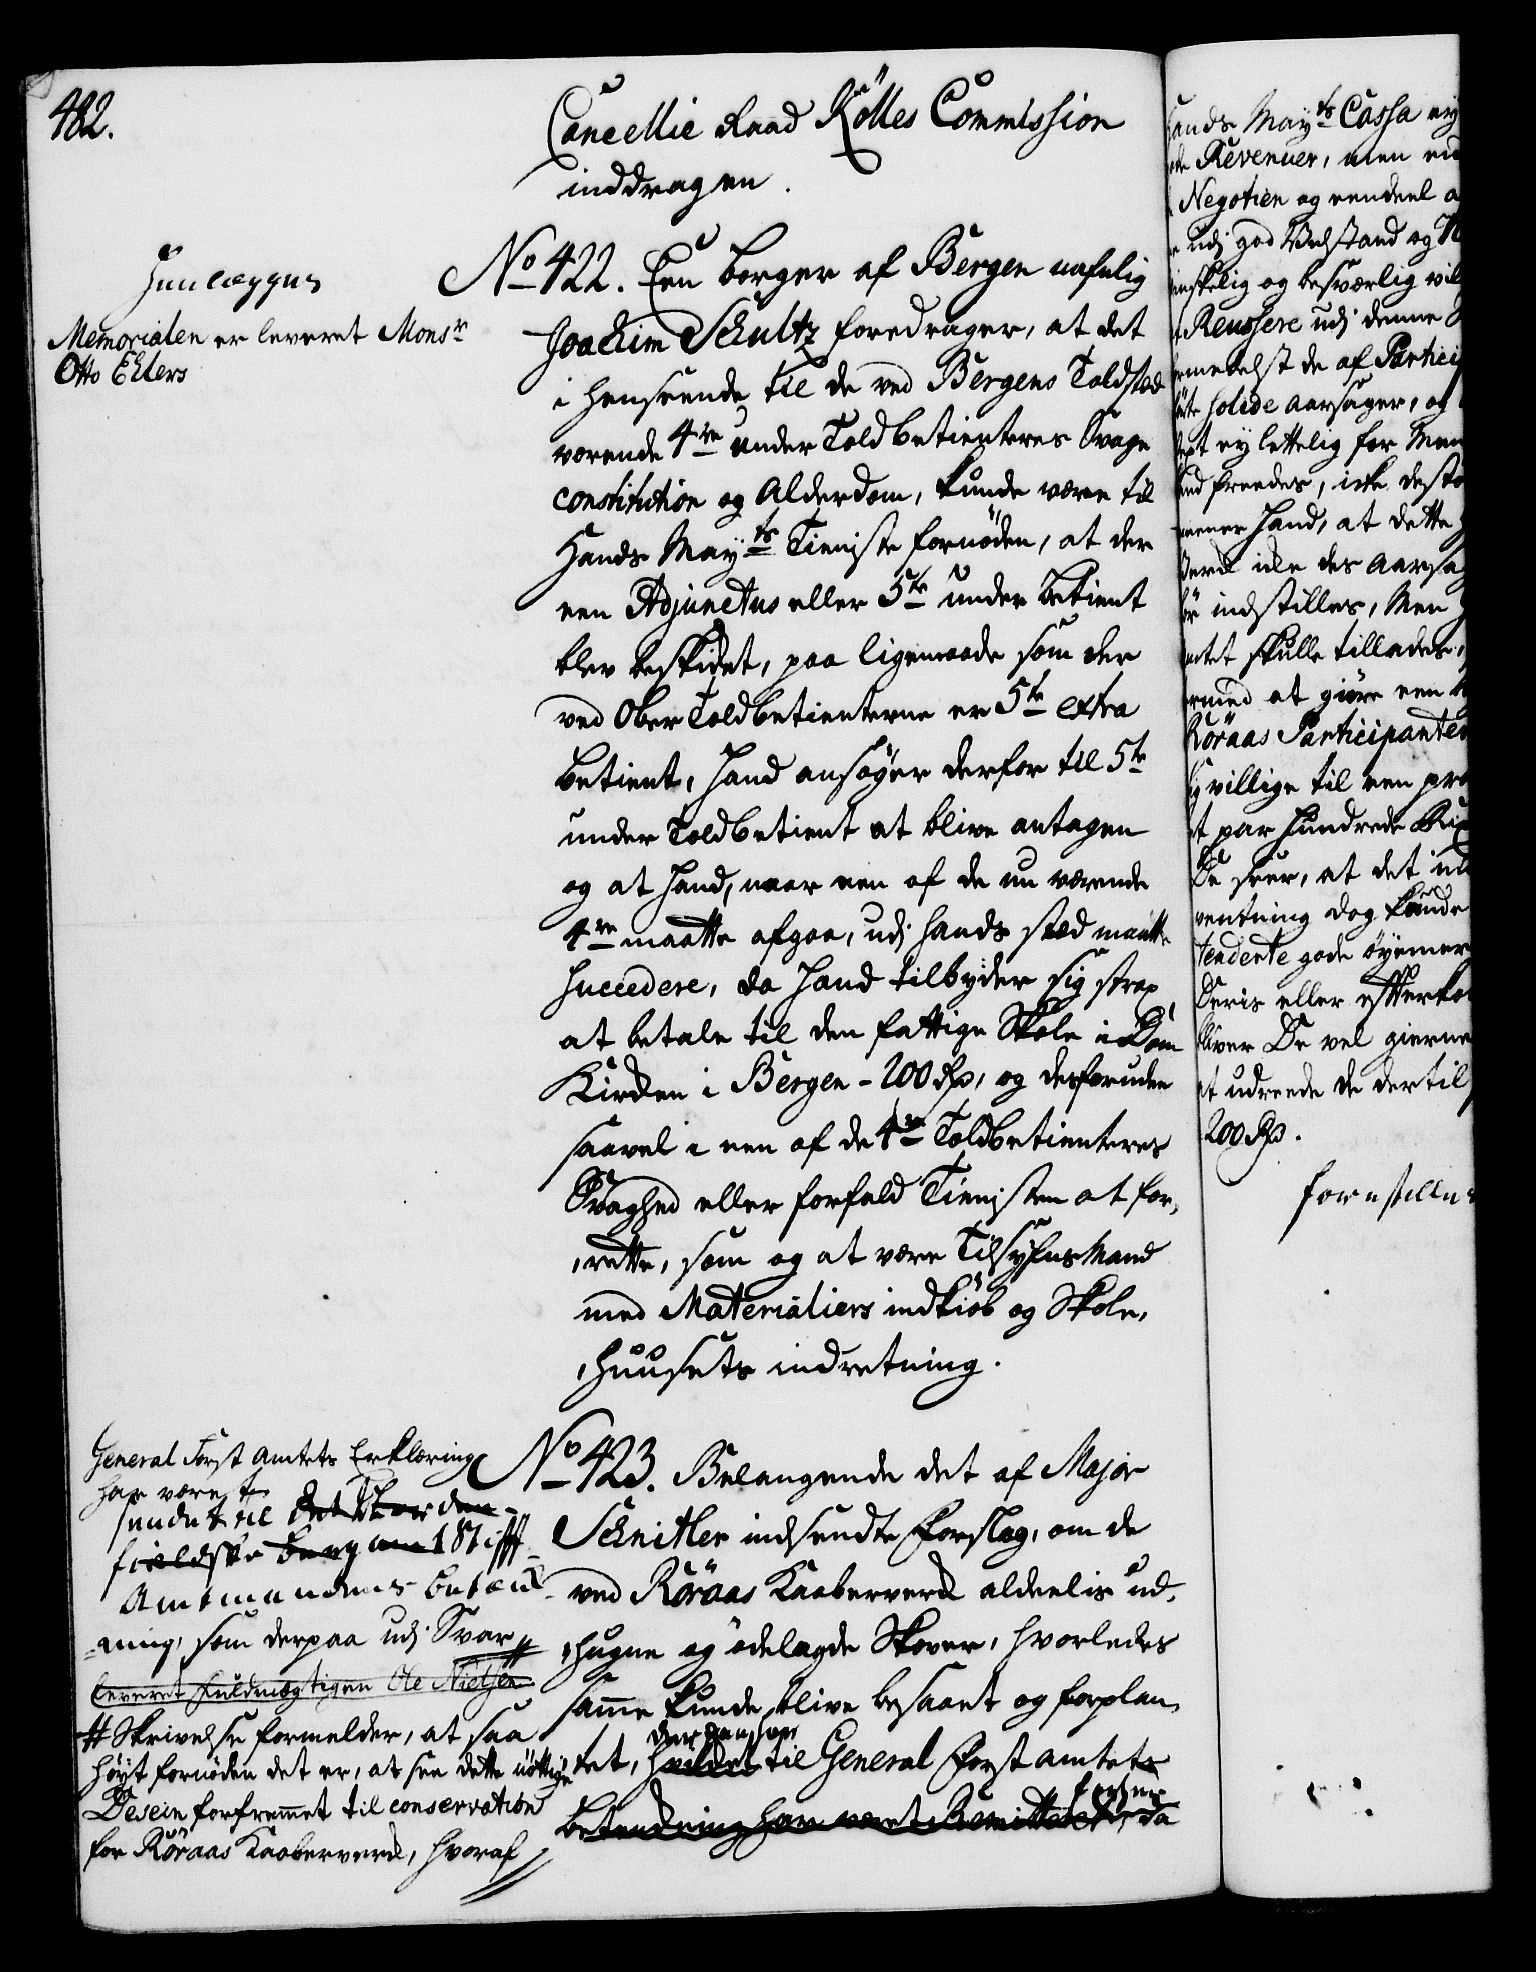 482.
Cancellie Raad Rölles Commission
inddragen.
Henlægges
Memorialen er leveret Monsr
Otto Ehlers
No 422. Een borger af Bergen nafnlig
Joachim Schultz foredrager, at det
i henseende til de ved Bergens Toldsted
værende 4re under Toldbetienteres Svage
constitution og Alderdom, kunde være til
Hands Mayts Tieniste fornöden, at der
een Adjunctus eller 5te under betient
blev beskicket, paa ligemaade som der
ved Ober Toldbetienterne er 5te extra
betient, Hand ansöger derfor til 5te
under Toldbetient at blive antagen
og at Hand, naar een af de nu værende
4re maatte afgaa, udj hands stæd maatte
succedere, da Hand tilbyder sig strax
at betale til den fattige Skole i Dom
Kircken i Bergen - 200 Rdr, og desforuden
saavel i een af de 4re Toldbetienteres
Svaghed eller forfald Tienisten at for,
,rette, som og at være Tilsyfns Mand
med Materialiers indkiöb og Skole,
,huusets indretning.
General Forst Amtets Erklæring
har været
sendet til det Nordenfieldske
Amtmandens betænk-
-ning, som derpaa udj Svar
leveret fuldmægtigen Ole Nielsen
# Skrivelse formelder, at saa
höyt fornöden det er, at see dette nöttige
Desein forfremmet til conservation
for Röraas Kaaberverck, hvoraf
No 423. Belangende det af Major
Schnitler indsendte Forslag, om de
ved Röraas Kaaberverck aldeelis ud,
,hugne og ödelagde Skover, hvorledes
samme kunde blive besaaet og forplan,
tet, hvilcket til General Forst Amtets
betænckning har været Remitteret, da
Hands Mayts Cassa ey
Revenuer, men
Negotien og eendeel
udj god Velstand og
og besværlig
Reussere udj denne
de af
solide aarsager, og
ey lettelig for
freedes, icke desto
Hand, at dette
icke des aarsag
indstilles, Men
skulle tillades,
at giöre een
Röraas Participanter
villige til een
par hundrede
De seer, at det
ventning dog kunde
gode öyemer
eller efterkom
bliver De vel gierne
at udreede de dertil
200 Rdr.
forestilles